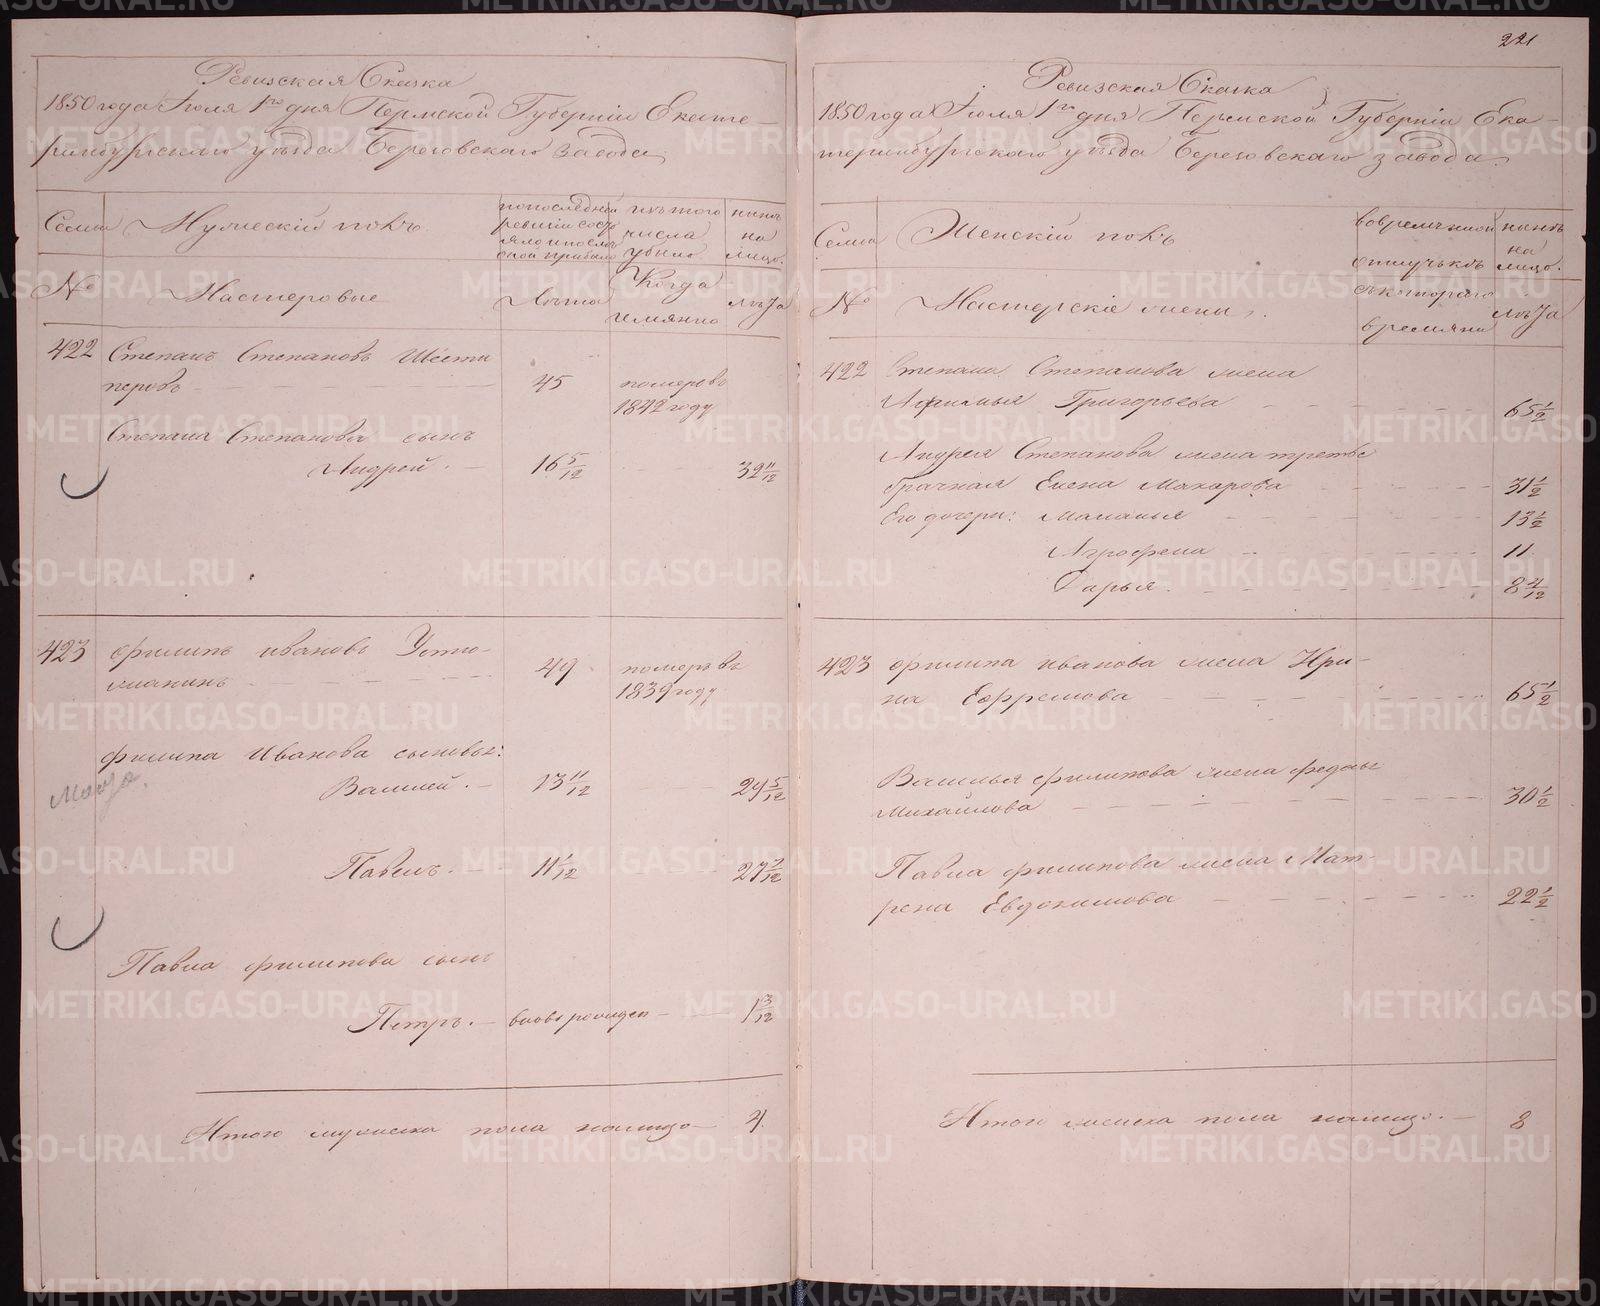 Ревизская Сказка
1850 года Июля 1го дня Пермской Губерніи Екате-
ринбургскаго уѣзда Березовскаго завода
Семьи
Мужескій полъ
по последней
ревизіи состо
яло и после
оной прибыло
изъ того
числа
убыло
нынѣ
на
лицо.
№
Мастеровые
Лѣта
Когда
имянно
лѣта
422 Степанъ Степановъ Шести
перовъ 45 померъ въ
1842 году
Степана Степанова сынъ
Андрей. 16 5/12 39 11/12
423 Филипъ Ивановъ Устю-
жанинъ 49 померъ въ
1839 году
Филипа Иванова сыновья:
Василей. 13 11/12 29 5/12
Павелъ. 11 1/12 27 7/12
Павла Филипова сынъ
Петръ. вновь рожден 1 3/12
Итого мужеска пола налицо 4
221
Ревизская Сказка
1850 года Июля 1го дня Пермской Губерніи Ека-
теринбургскаго уѣзда Березовскаго завода
Семьи
Женскій полъ
во временной
отлучькѣ
нынѣ
на
лицо.
№
Мастерскіе жены
съ котораго
времяни
лѣта
422 Степана Степанова жена
Григорьева 65 1/2
Андрея Степанова жена третье
брачная Елена Макарова 31 1/2
Его дочери: Маланья 13 1/2
Агрофена 11
Дарья. 8 4/12
423 Филипа Иванова жена Ири-
на Ефремова 65 1/2
Василья Филипова жена Федосья
Михайлова 30 1/2
Павла Филипова жена Мат-
рена Евдокимова 22 1/2
Итого женска пола налицо. 8
METRIKI.GASO-URAL.RU